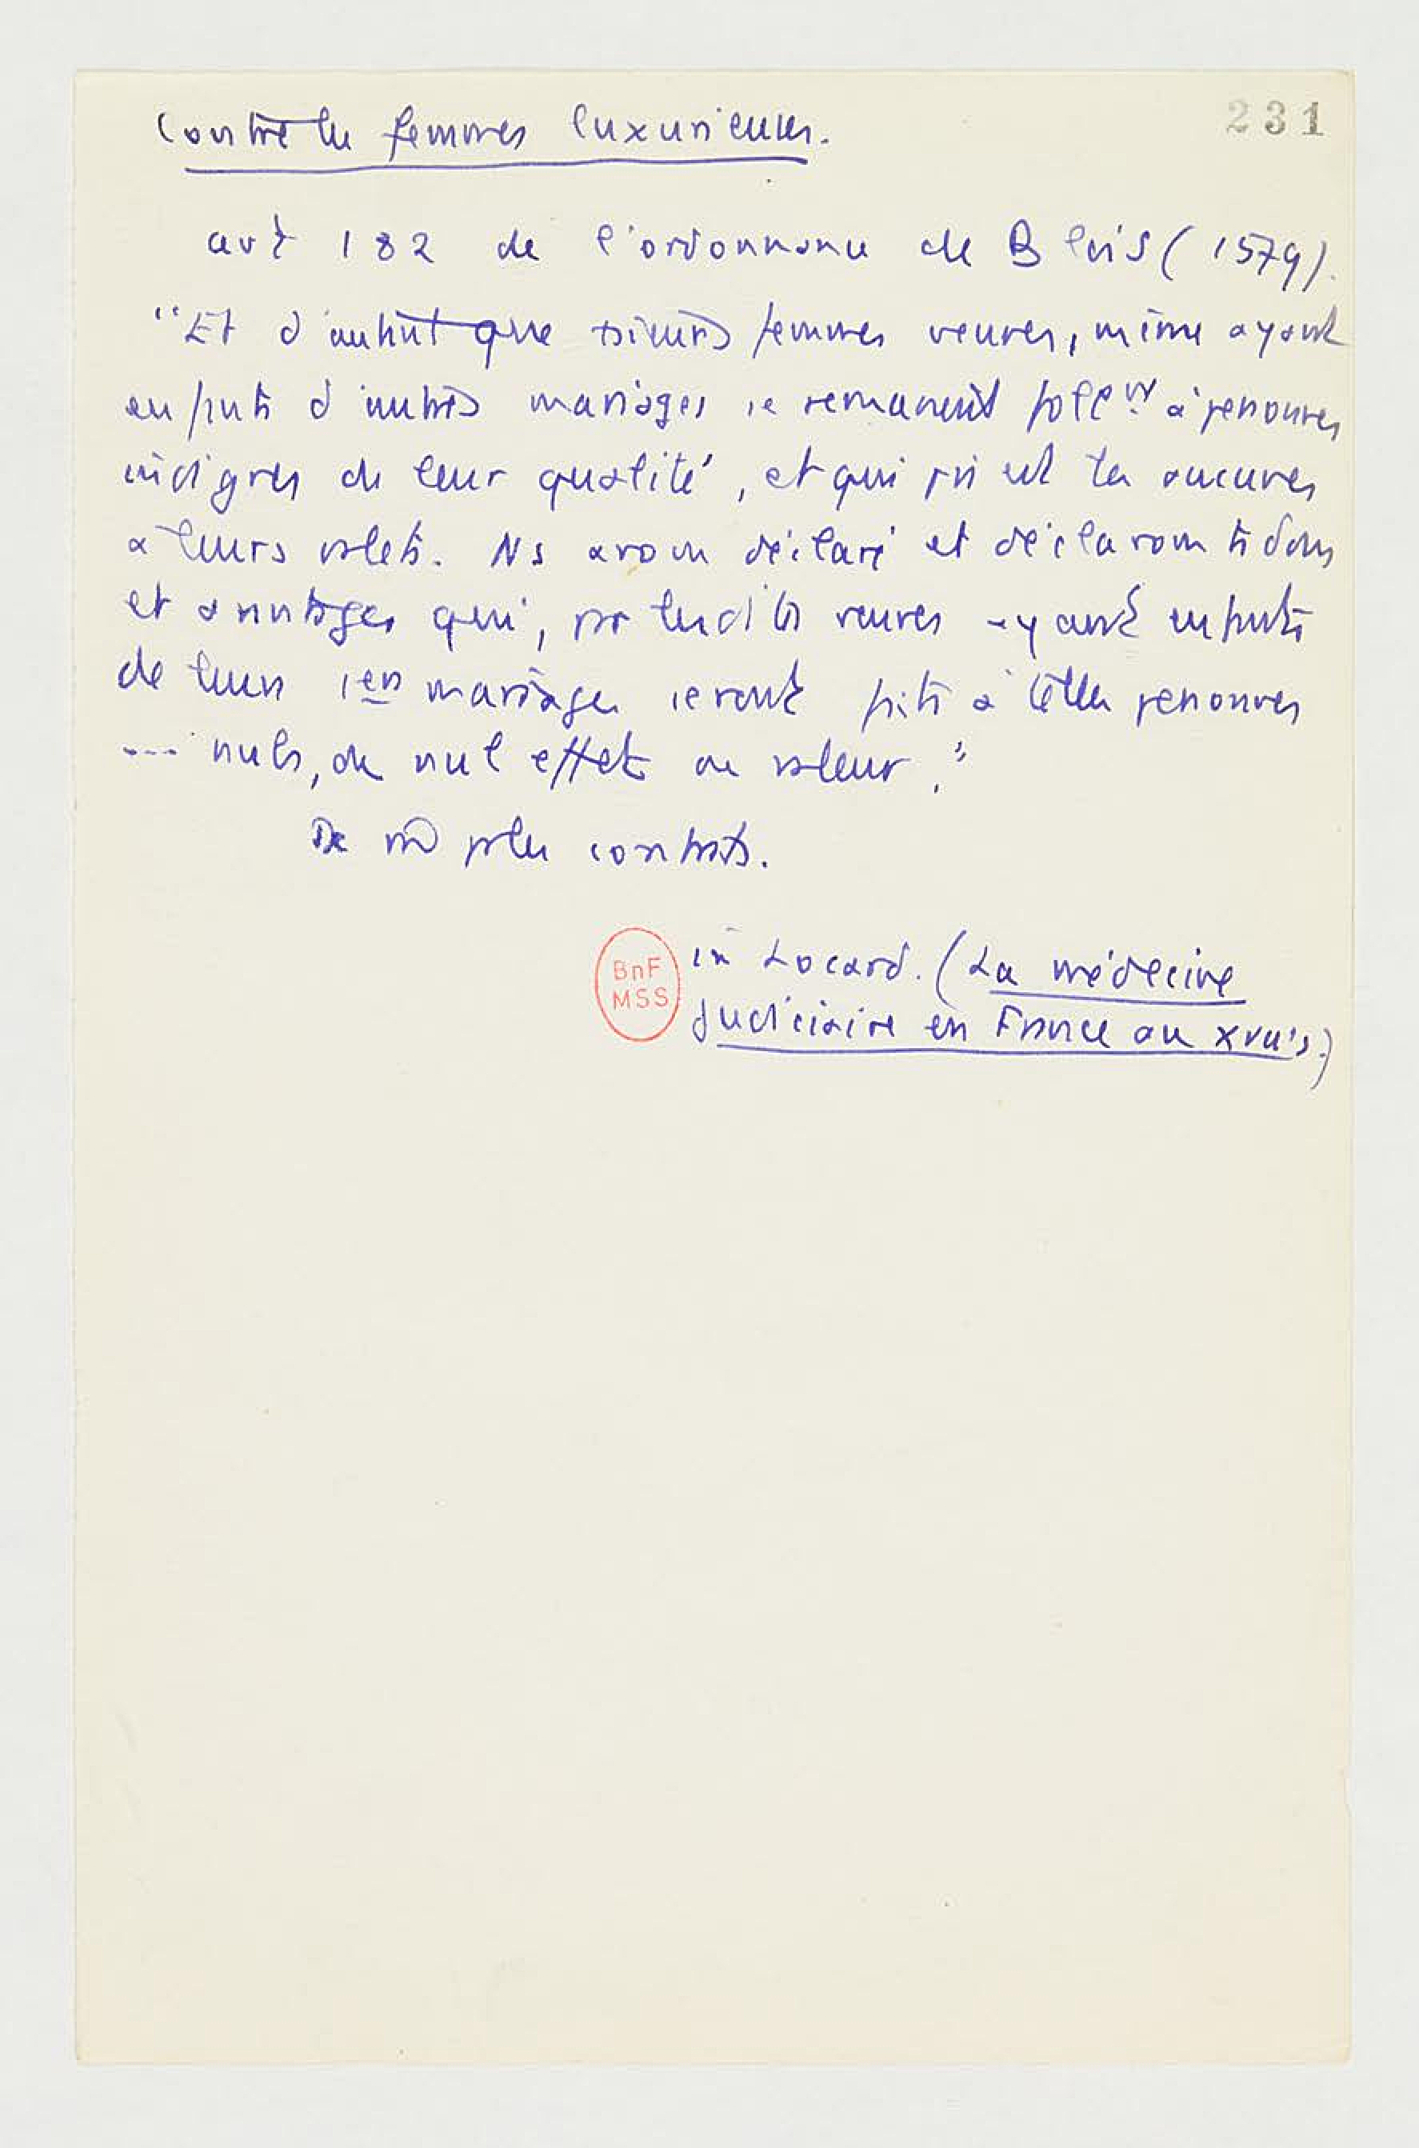 231
Contre les femmes luxurieuses.
art 182 de l'ordonnance de Blois (1579).
"Et d'autant que femmes veuves, même ayant
enfants d'autres mariages se remarient foll<sup>nt</sup> à personnes
indignes de leur qualité, et qui pis est les aucunes
à leurs valets. Ns avons déclaré et déclarons ts dons
et avantages qui, par lesdites veuves ayant enfants
de leurs 1ers mariages seront faits à telles personnes
... nuls, de nul effet ou valeur."
De m̂ les contrats.
in Locard. (La médecine
judiciaire en France au XVIIe s.)
BnF
MSS